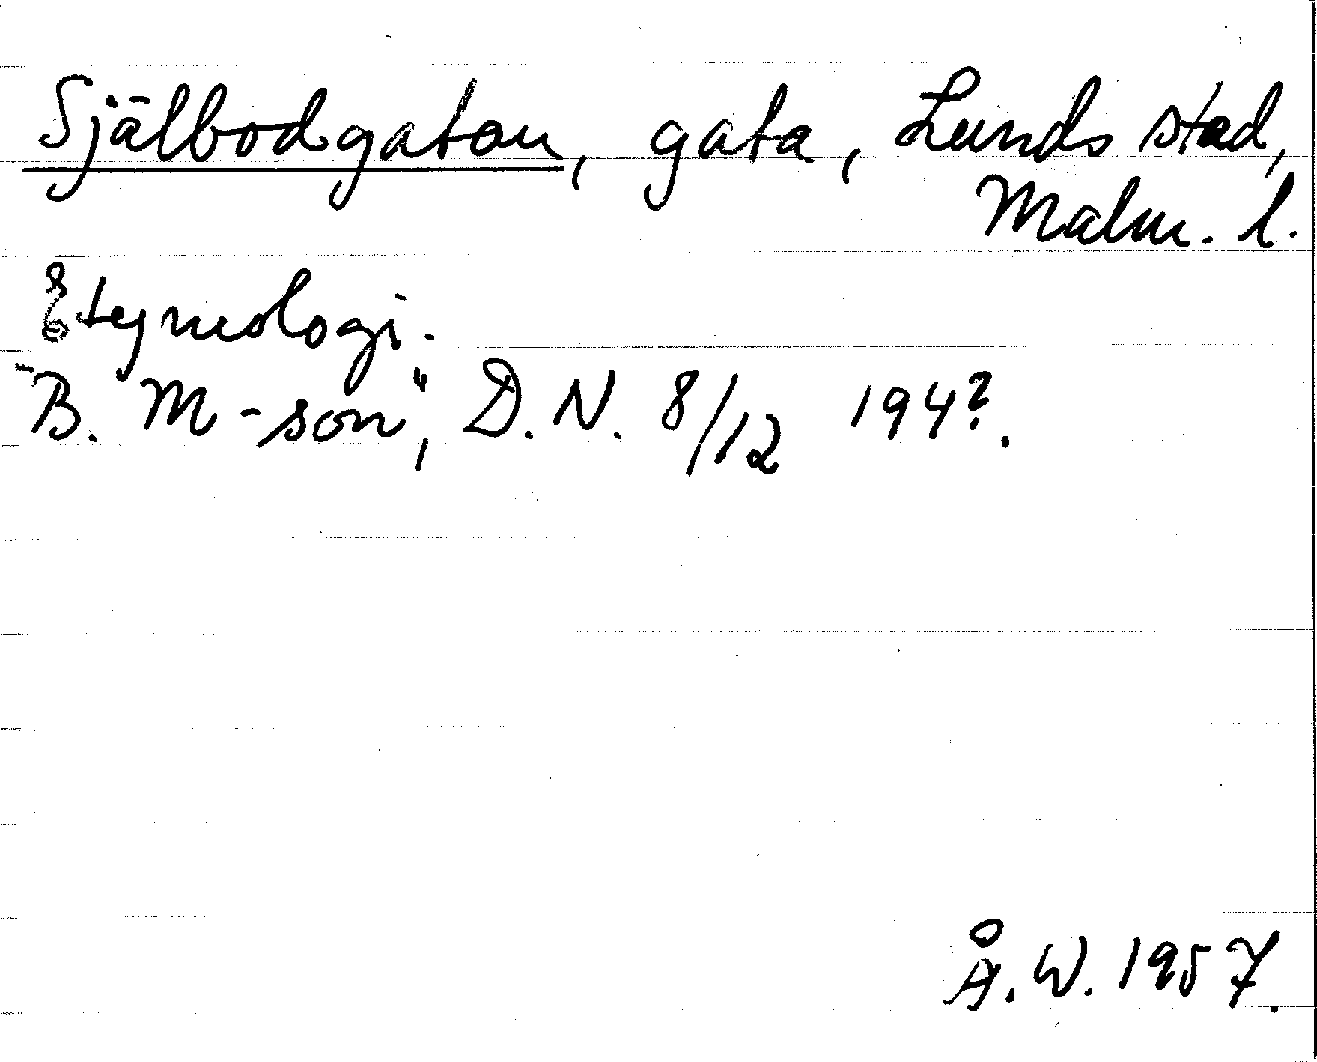 Själbodgatan, gata, Lunds stad,
Malm. l.
Etymologi.
"B. M-son", D.N. 8/12 194?.
Å.W. 1957.